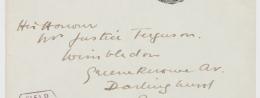 His Honour
Mr Justice Ferguson.
Wimbledon
Greenknowe Av.
Darlinghurst